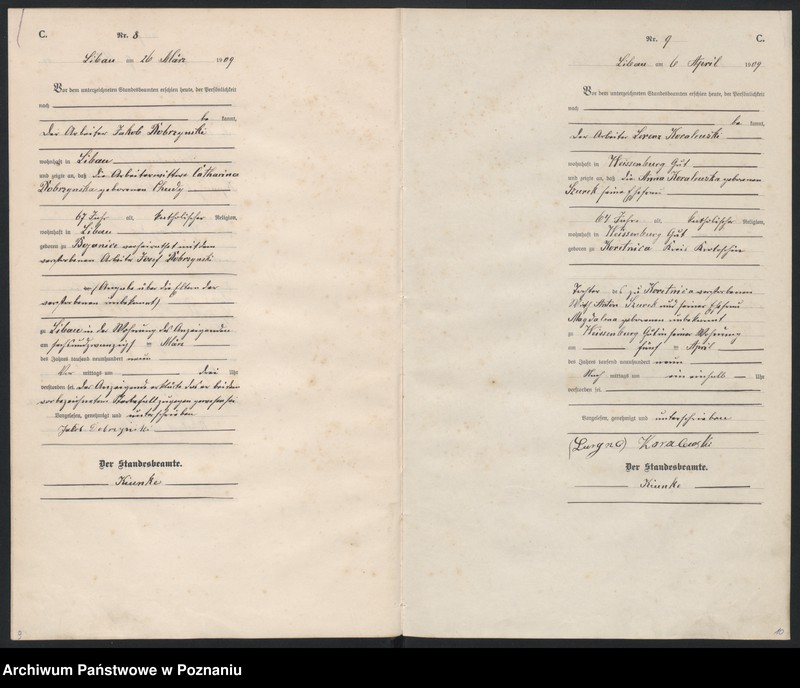 C. Nr. 8
Libau am 26 März 1909
Vor dem unterzeichneten Standesbeamten erschien heute, der Persönlichkeit
nach
be kannt,
der Arbeiter Jakob Dobrzynski
wohnhaft in Libau
und zeigte an, daß die Arbeiterwittwe Catharina
Dobrzynska geborenen
67 Jahr alt, katholischer Religion,
wohnhaft in Libau
geboren zu verheirathet mit dem
verstorbenen Arbeiter Josef Dobrzynski
(Angabe über die Eltern der
verstorbenen unbekannt)
zu Libau in der Wohnung des Anzeigenden
am sechsundzwanzigsten März
des Jahres tausend neunhundert neun
Vor mittags um drei Uhr
verstorben sei. Der Anzeigende erklärte das er bei dem
vorbezeichneten Sterbefall zugegen gewesen sei
Vorgelesen, genehmigt und unterschrieben
Jakob Dobrzynski
Der Standesbeamte.
Kienke
9
Nr. 9 C.
Libau am 6 April 1909
Vor dem unterzeichneten Standesbeamten erschien heute, der Persönlichkeit
nach
be kannt,
der Arbeiter Lorenz Koralewski
wohnhaft in Weissenburg Gut
und zeigte an, daß die Anna Koralewska geborenen
Szurek seine Ehefrau
64 Jahre alt, katholische Religion,
wohnhaft in Weissenburg Gut
geboren zu Koritnica Kreis Krotoschin
Tochter des zu Koritnica verstorbenen
Anton Szurek und seiner Ehefrau
Magdalena geborenen unbekannt
zu Weissenburg Gut in seiner Wohnung
am fünf ten April
des Jahres tausend neunhundert neun
Nach mittags um ein einhalb Uhr
verstorben sei.
Vorgelesen, genehmigt und unterschrieben
Koralewski
Der Standesbeamte.
Kienke
10
Archiwum Państwowe w Poznaniu